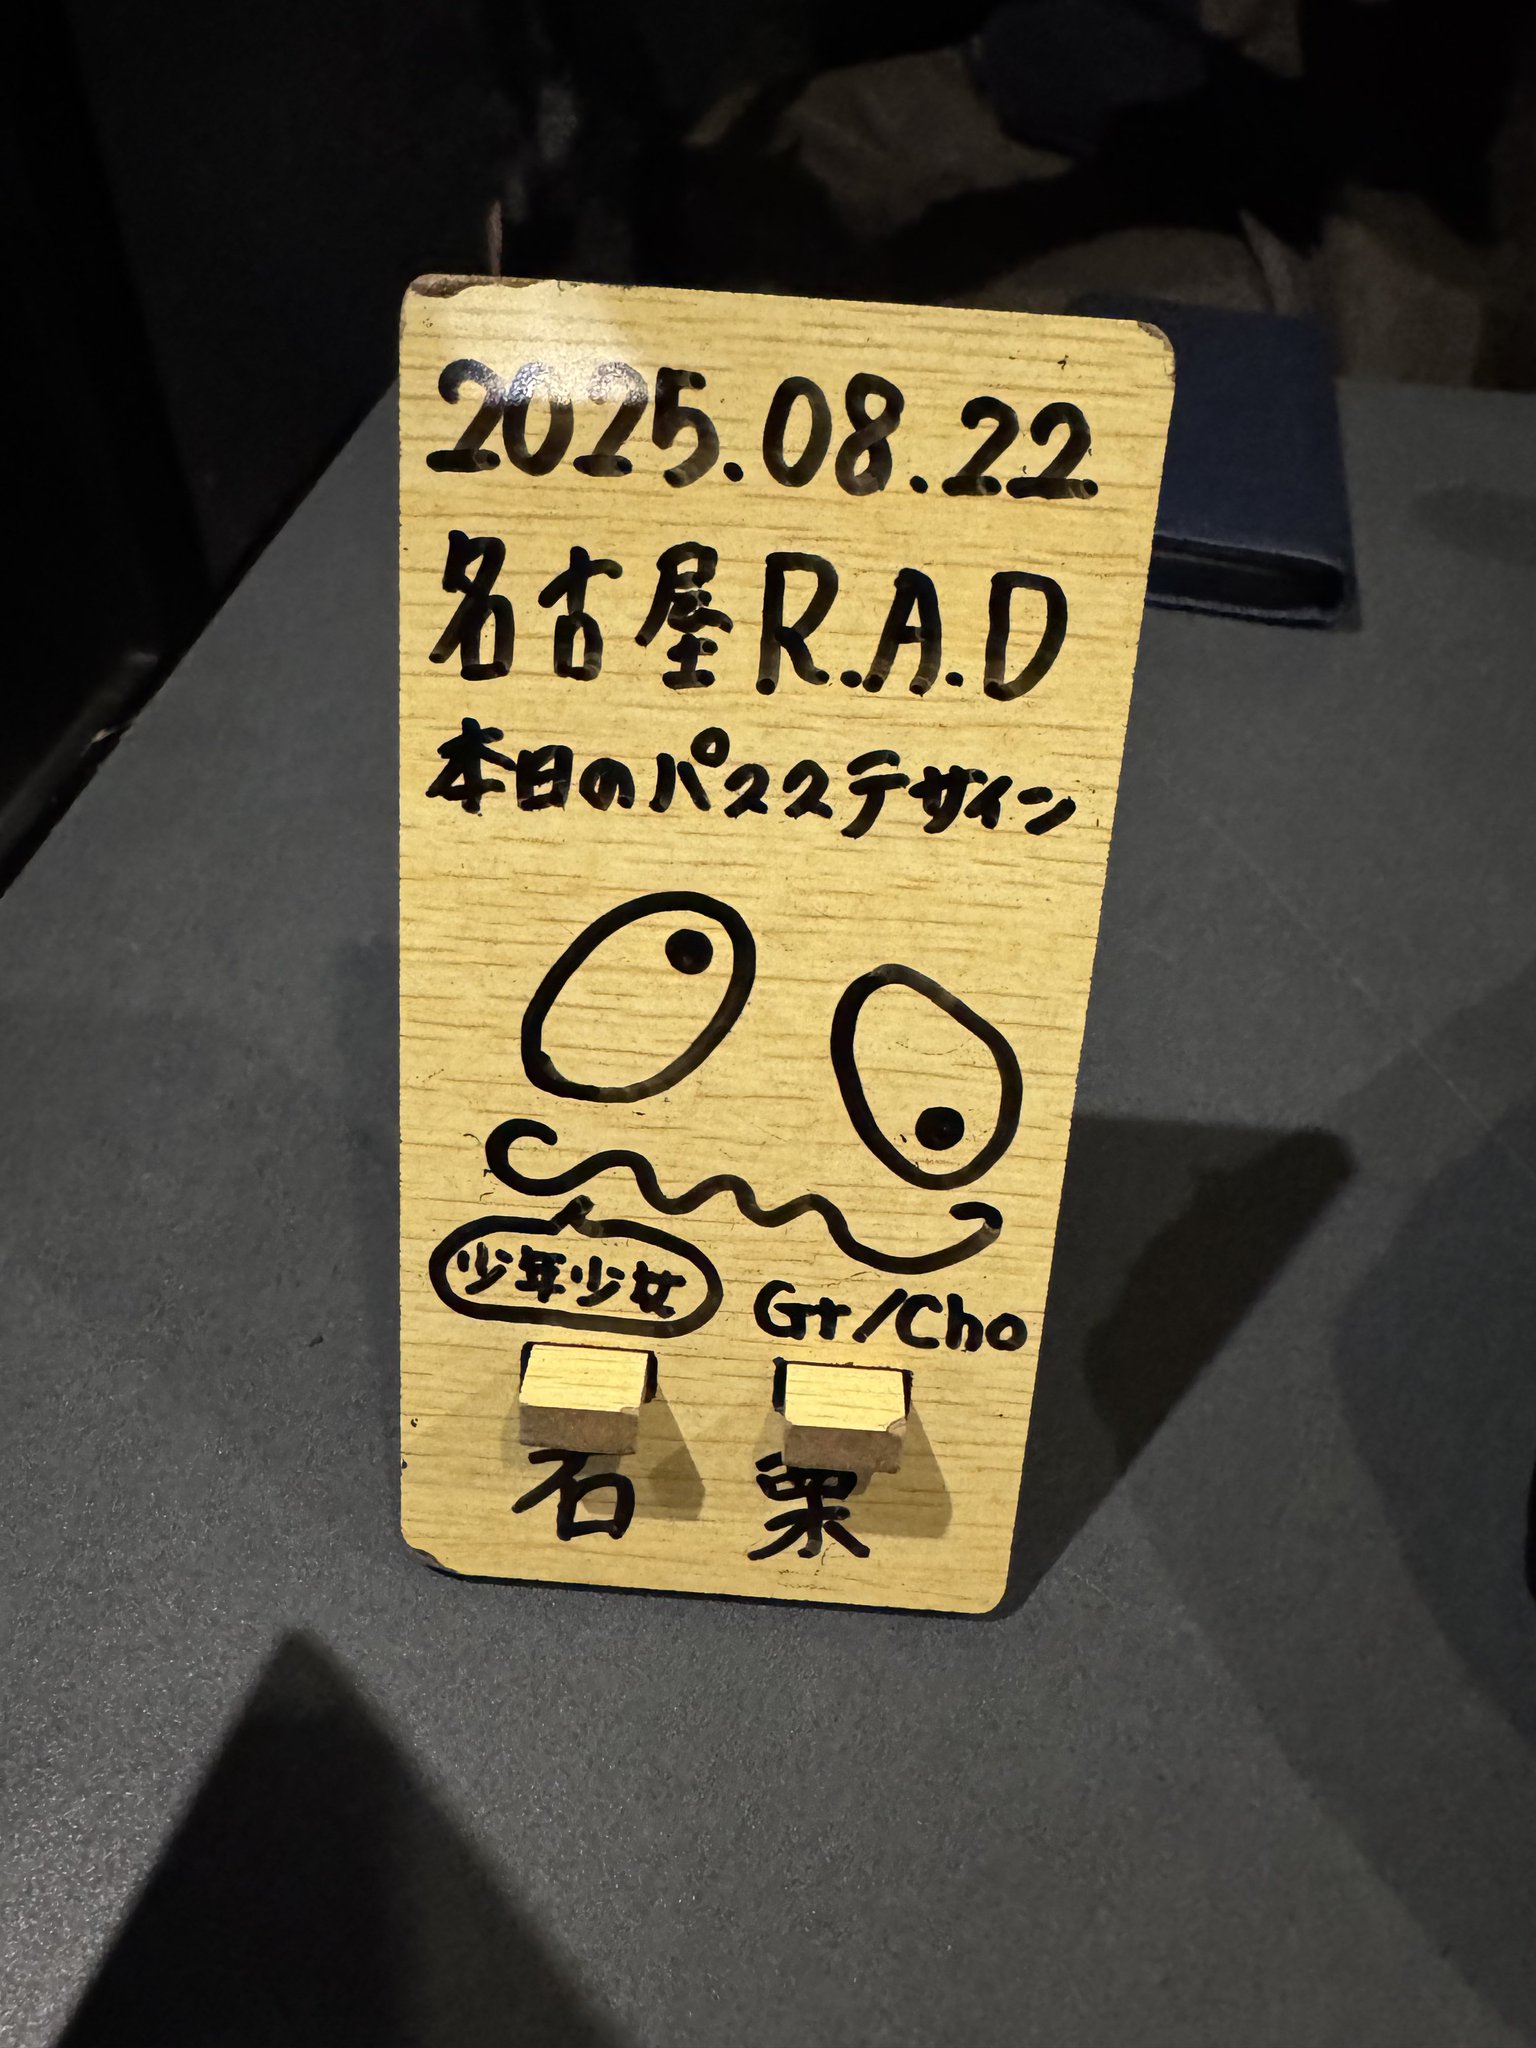 2025.08.22
名古屋R.A.D
本日のパスステザイン
少年少女
Gt/Cho
石 栗